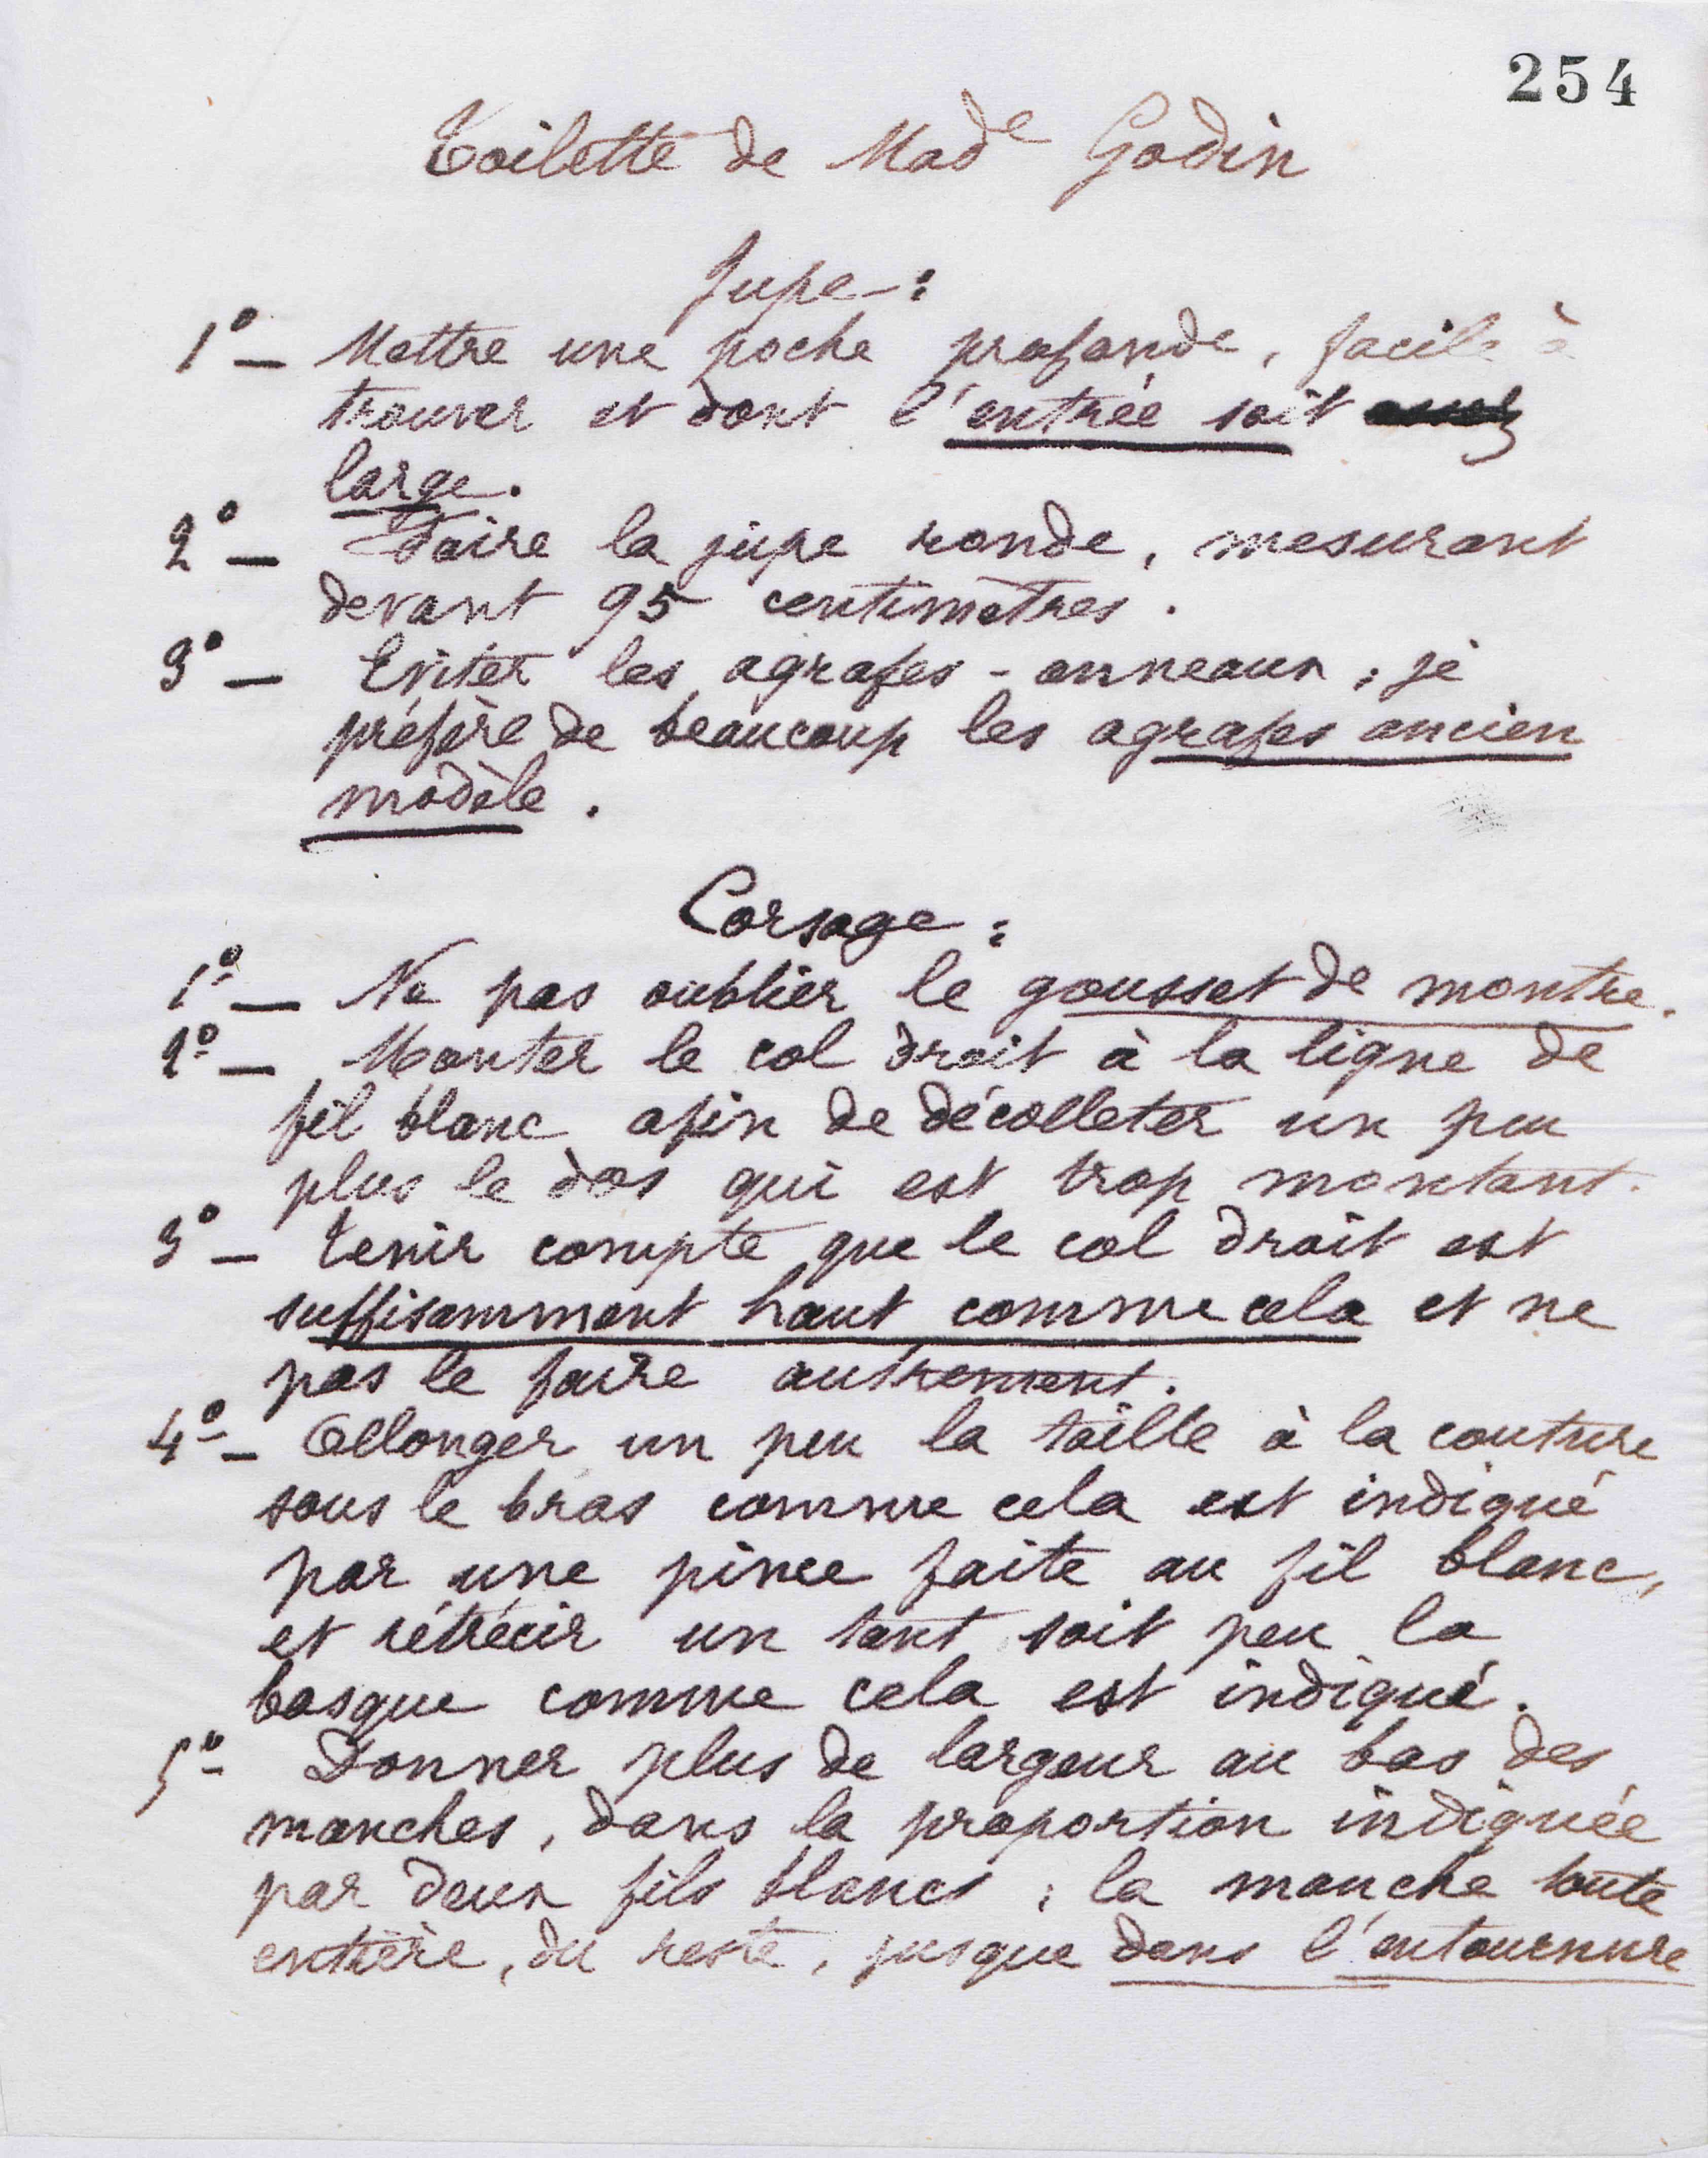 254
Toilette de Made Godin
Jupe :
1o — Mettre une poche profonde, facile à
trouver et dont l'entrée soit
large.
2o — Faire la jupe ronde, mesurant
devant 95 centimètres.
3o — Eviter les agrafes-anneaux ; je
préfère de beaucoup les agrafes ancien
modèle.
Corsage :
1o — Ne pas oublier le gousset de montre.
2o — Monter le col droit à la ligne de
fil blanc afin de décolleter un peu
plus le dos qui est trop montant.
3o — Tenir compte que le col droit est
suffisamment haut comme cela et ne
pas le faire autrement.
4o — Allonger un peu la taille à la couture
sous le bras comme cela est indiqué
par une pince faite au fil blanc,
et rétrécir un tant soit peu la
basque comme cela est indiqué.
5o - Donner plus de largeur au bas des
manches, dans la proportion indiquée
par deux fils blancs ; la manche toute
entière, du reste, jusque dans l'entournure